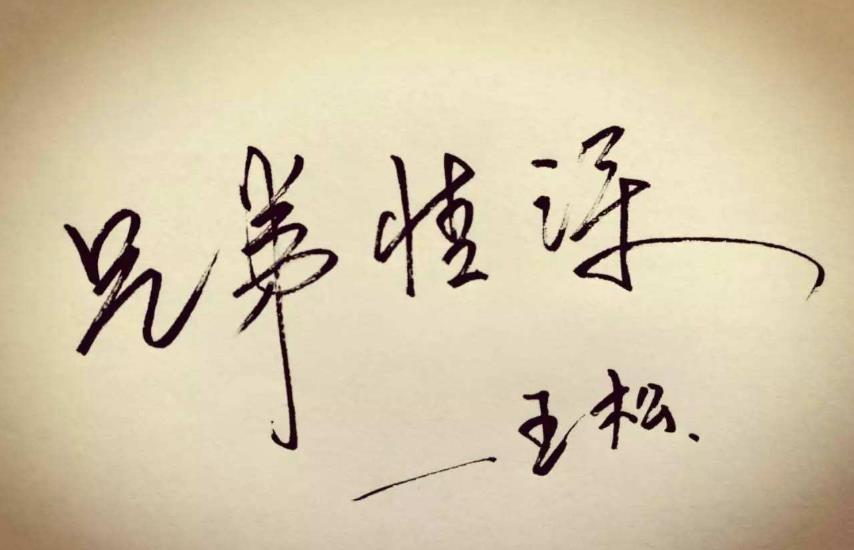 兄弟情深
—王松